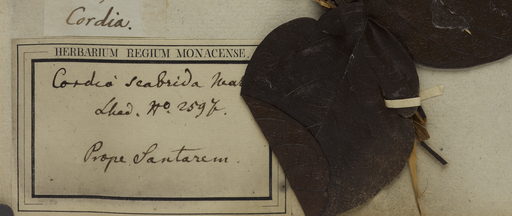 Cordia.
HERBARIUM REGIUM MONACENSE.
Cordia scabrida Mart
Shed. No. 2597.
Prope Santarem.